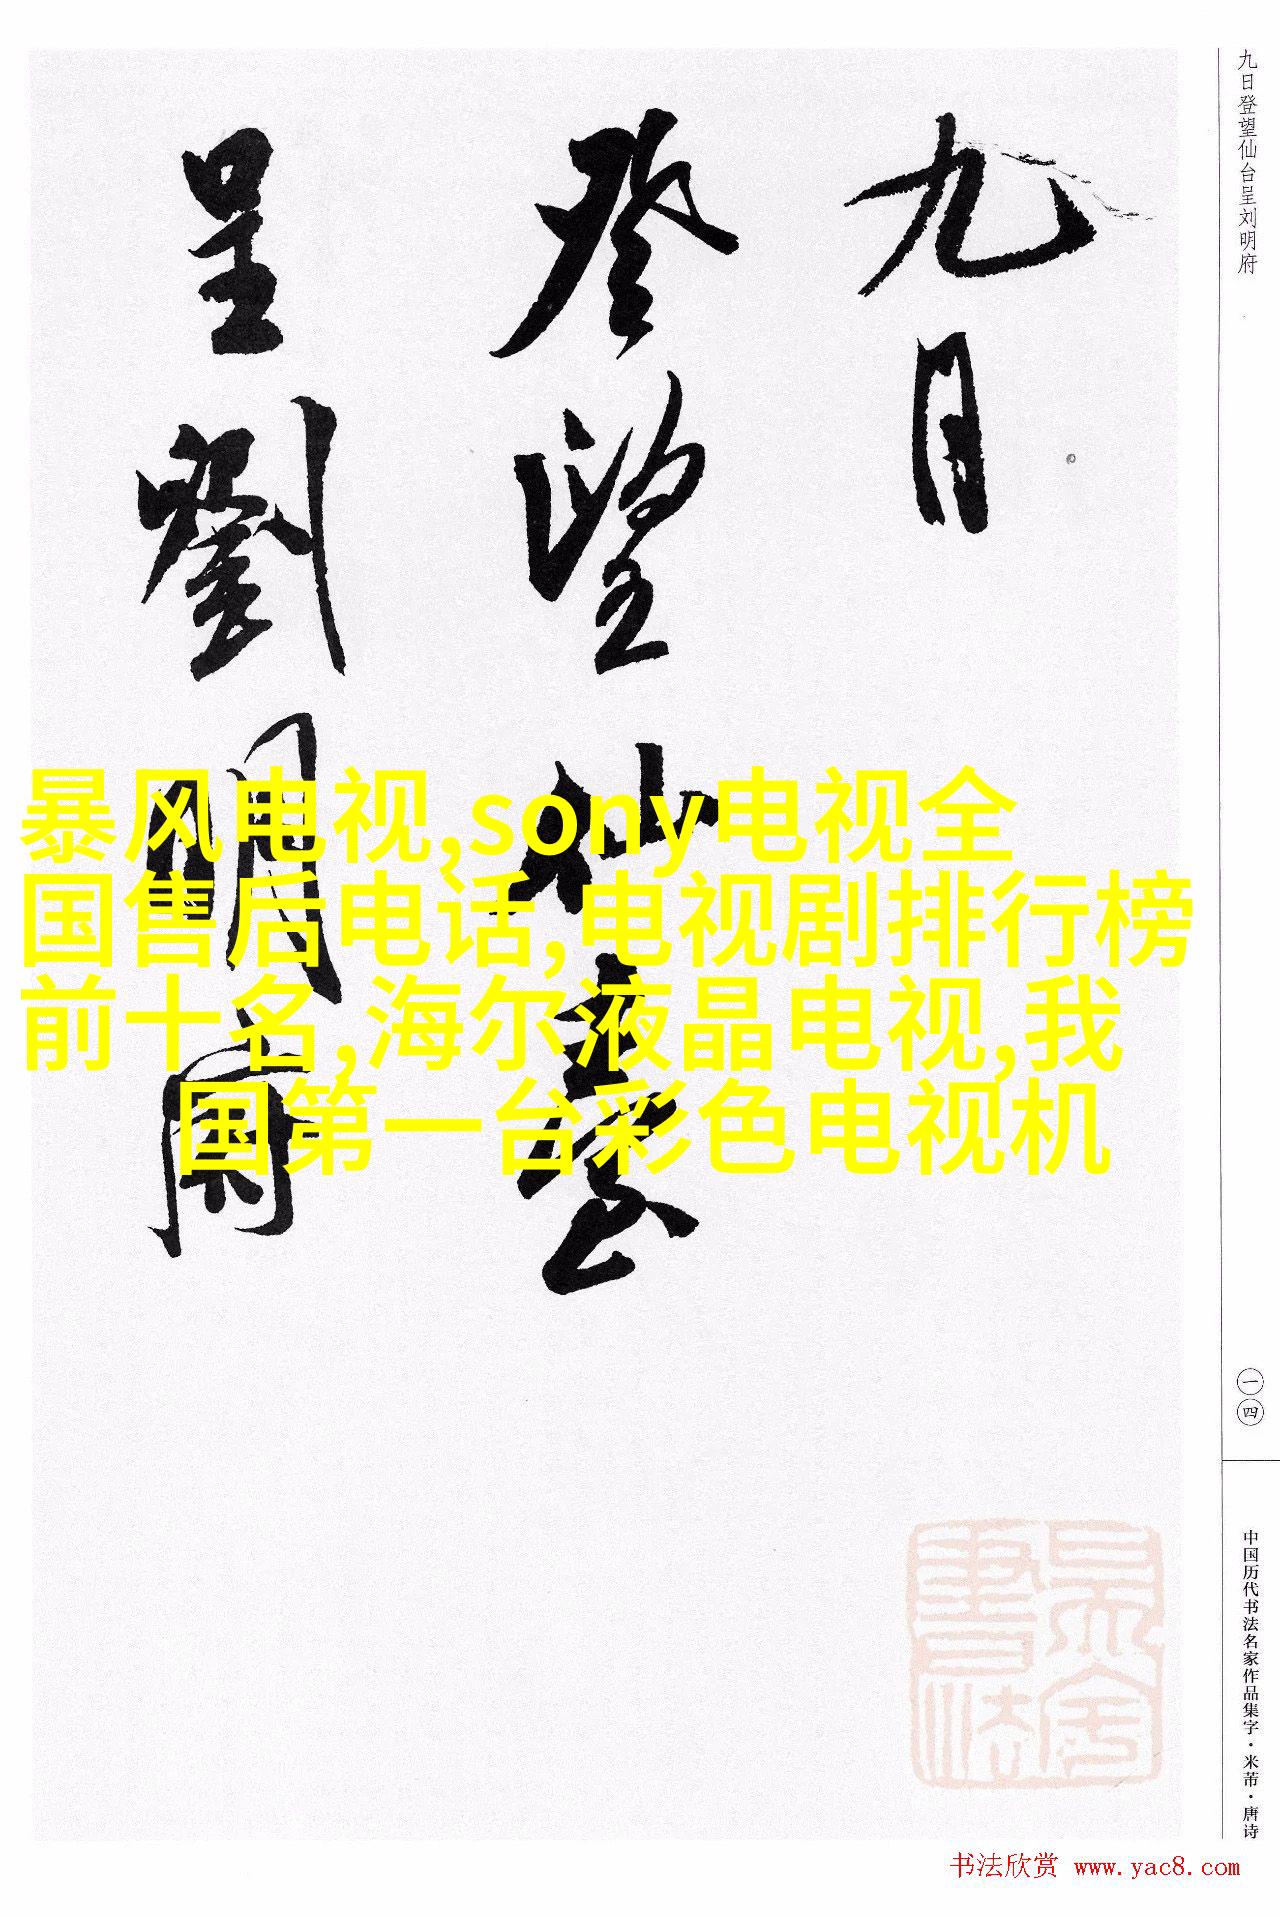 九日
登望仙臺
呈劉明府
九日登望仙台呈刘明府
一四
中国历代书法名家作品集字·米芾·唐诗
暴风电视,sony电视全
国售后电话,电视剧排行榜
前十名,海尔液晶电视,我
国第一台彩色电视机
书法欣赏 www.yac8.com